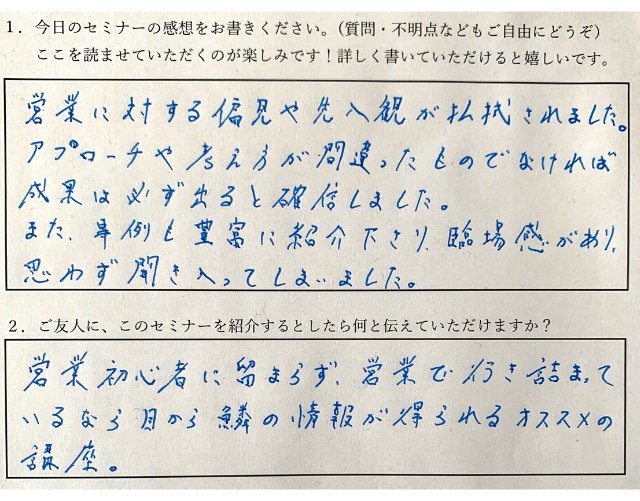 1．今日のセミナーの感想をお書きください。（質問・不明点などもご自由にどうぞ）
ここを読ませていただくのが楽しみです！詳しく書いていただけると嬉しいです。
営業に対する偏見や先入観が払拭されました。
アプローチや考え方が間違ったものでなければ
成果は必ず出ると確信しました。
また、事例も豊富に紹介下さり、臨場感があり、
思わず聞き入ってしまいました。
2．ご友人に、このセミナーを紹介するとしたら何と伝えていただけますか？
営業初心者に留まらず、営業で行き詰まって
いるなら目から鱗の情報が得られるオススメの
講座。